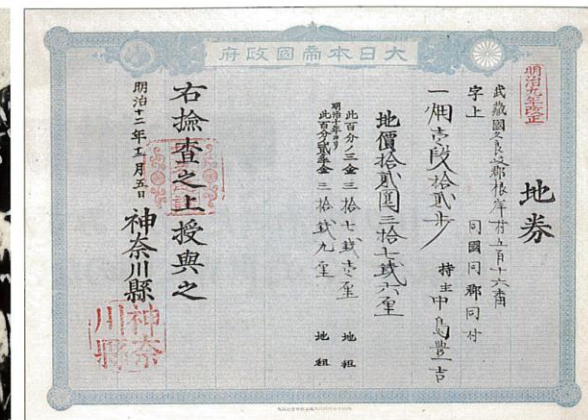 大日本帝國政府
明治九年改正
地券
武藏國久良岐郡根岸村五百十六番
字上
同國同郡同村
一畑壱段拾貳步
持主 中島豊吉
地價拾貳圓三拾七銭六厘
此百分ノ三金三拾七銭壱厘 地租
明治十年ヨリ
此百分ノ貳ヶ半金三拾銭九厘 地租
右撿査之上授與之
明治十二年 月五日
神奈川縣
神奈川縣